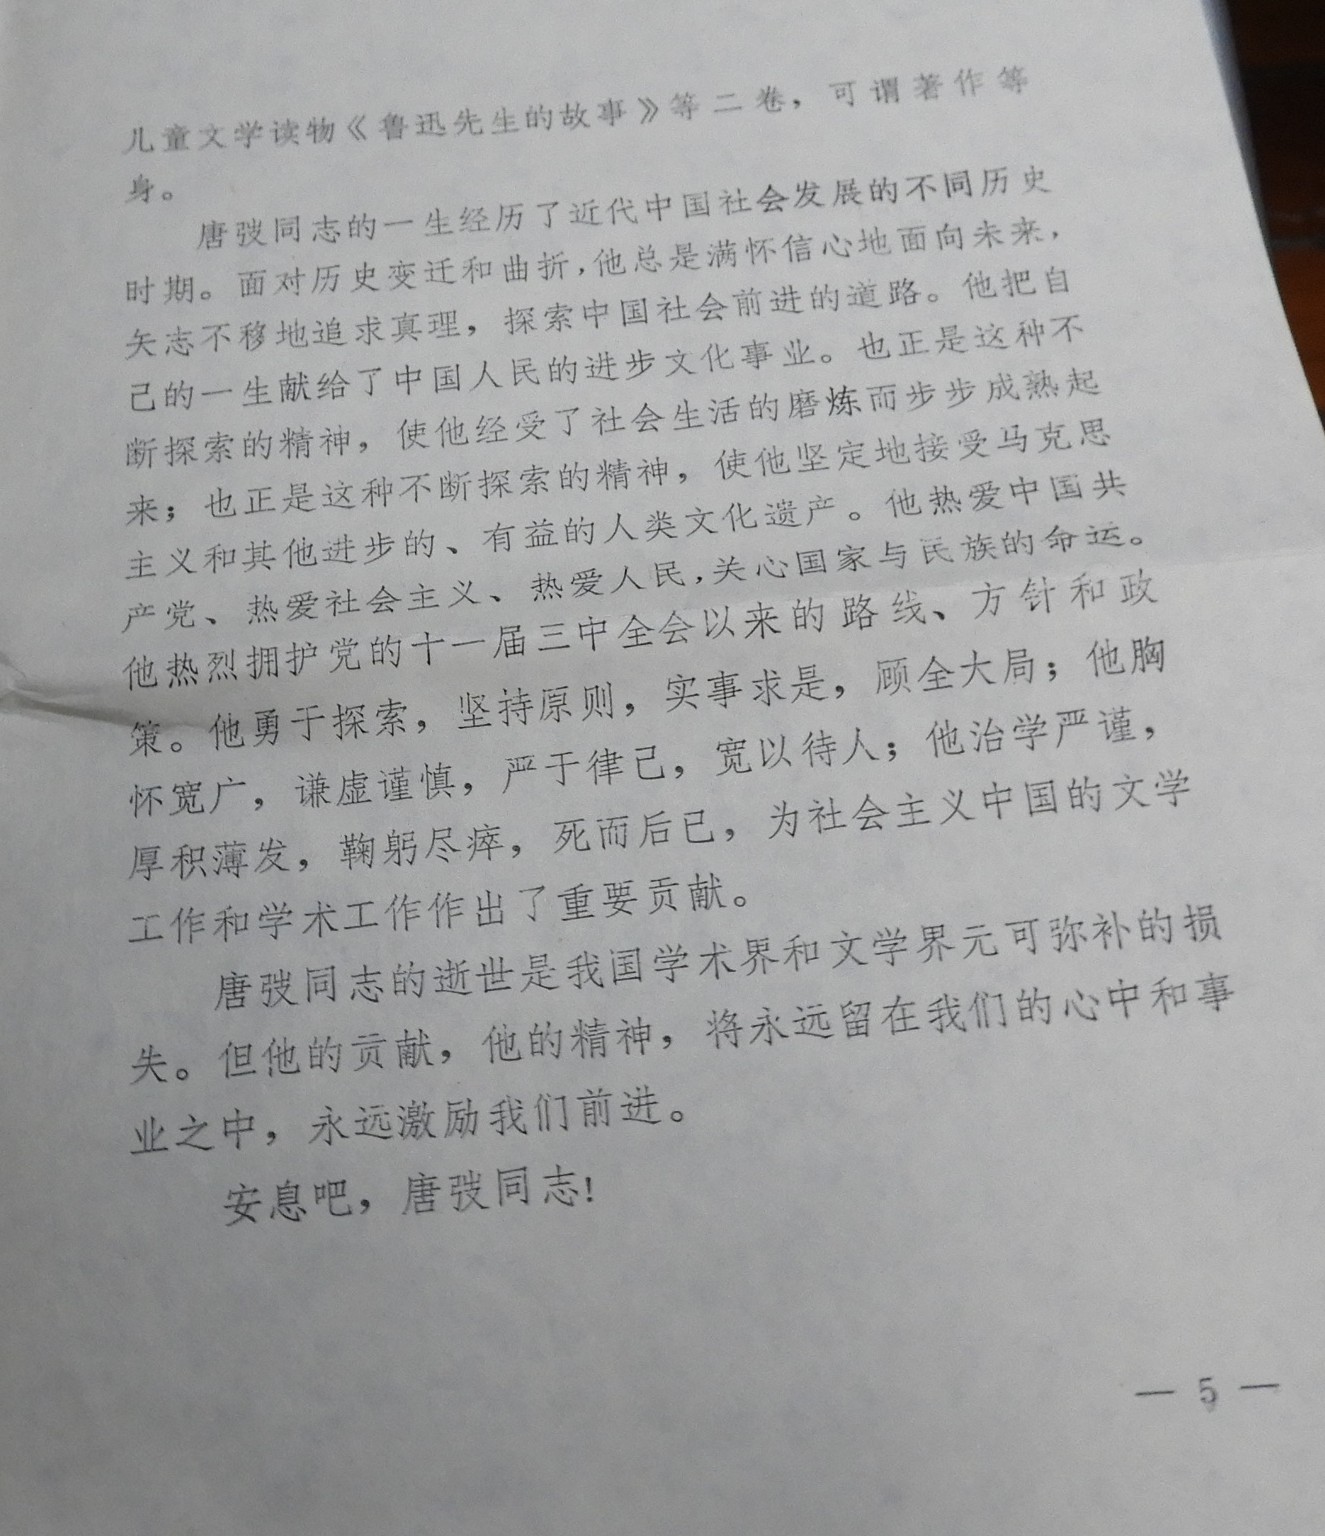 儿童文学读物《鲁迅先生的故事》等二卷，可谓著作等
身。
唐弢同志的一生经历了近代中国社会发展的不同历史
时期。面对历史变迁和曲折，他总是满怀信心地面向未来，
矢志不移地追求真理，探索中国社会前进的道路。他把自
己的一生献给了中国人民的进步文化事业。也正是这种不
断探索的精神，使他经受了社会生活的磨炼而步步成熟起
来；也正是这种不断探索的精神，使他坚定地接受马克思
主义和其他进步的、有益的人类文化遗产。他热爱中国共
产党、热爱社会主义、热爱人民，关心国家与民族的命运。
他热烈拥护党的十一届三中全会以来的路线、方针和政
策。他勇于探索，坚持原则，实事求是，顾全大局；他胸
怀宽广，谦虚谨慎，严于律己，宽以待人；他治学严谨，
厚积薄发，鞠躬尽瘁，死而后已，为社会主义中国的文学
工作和学术工作作出了重要贡献。
唐弢同志的逝世是我国学术界和文学界元可弥补的损
失。但他的贡献，他的精神，将永远留在我们的心中和事
业之中，永远激励我们前进。
安息吧，唐弢同志！
— 5 —